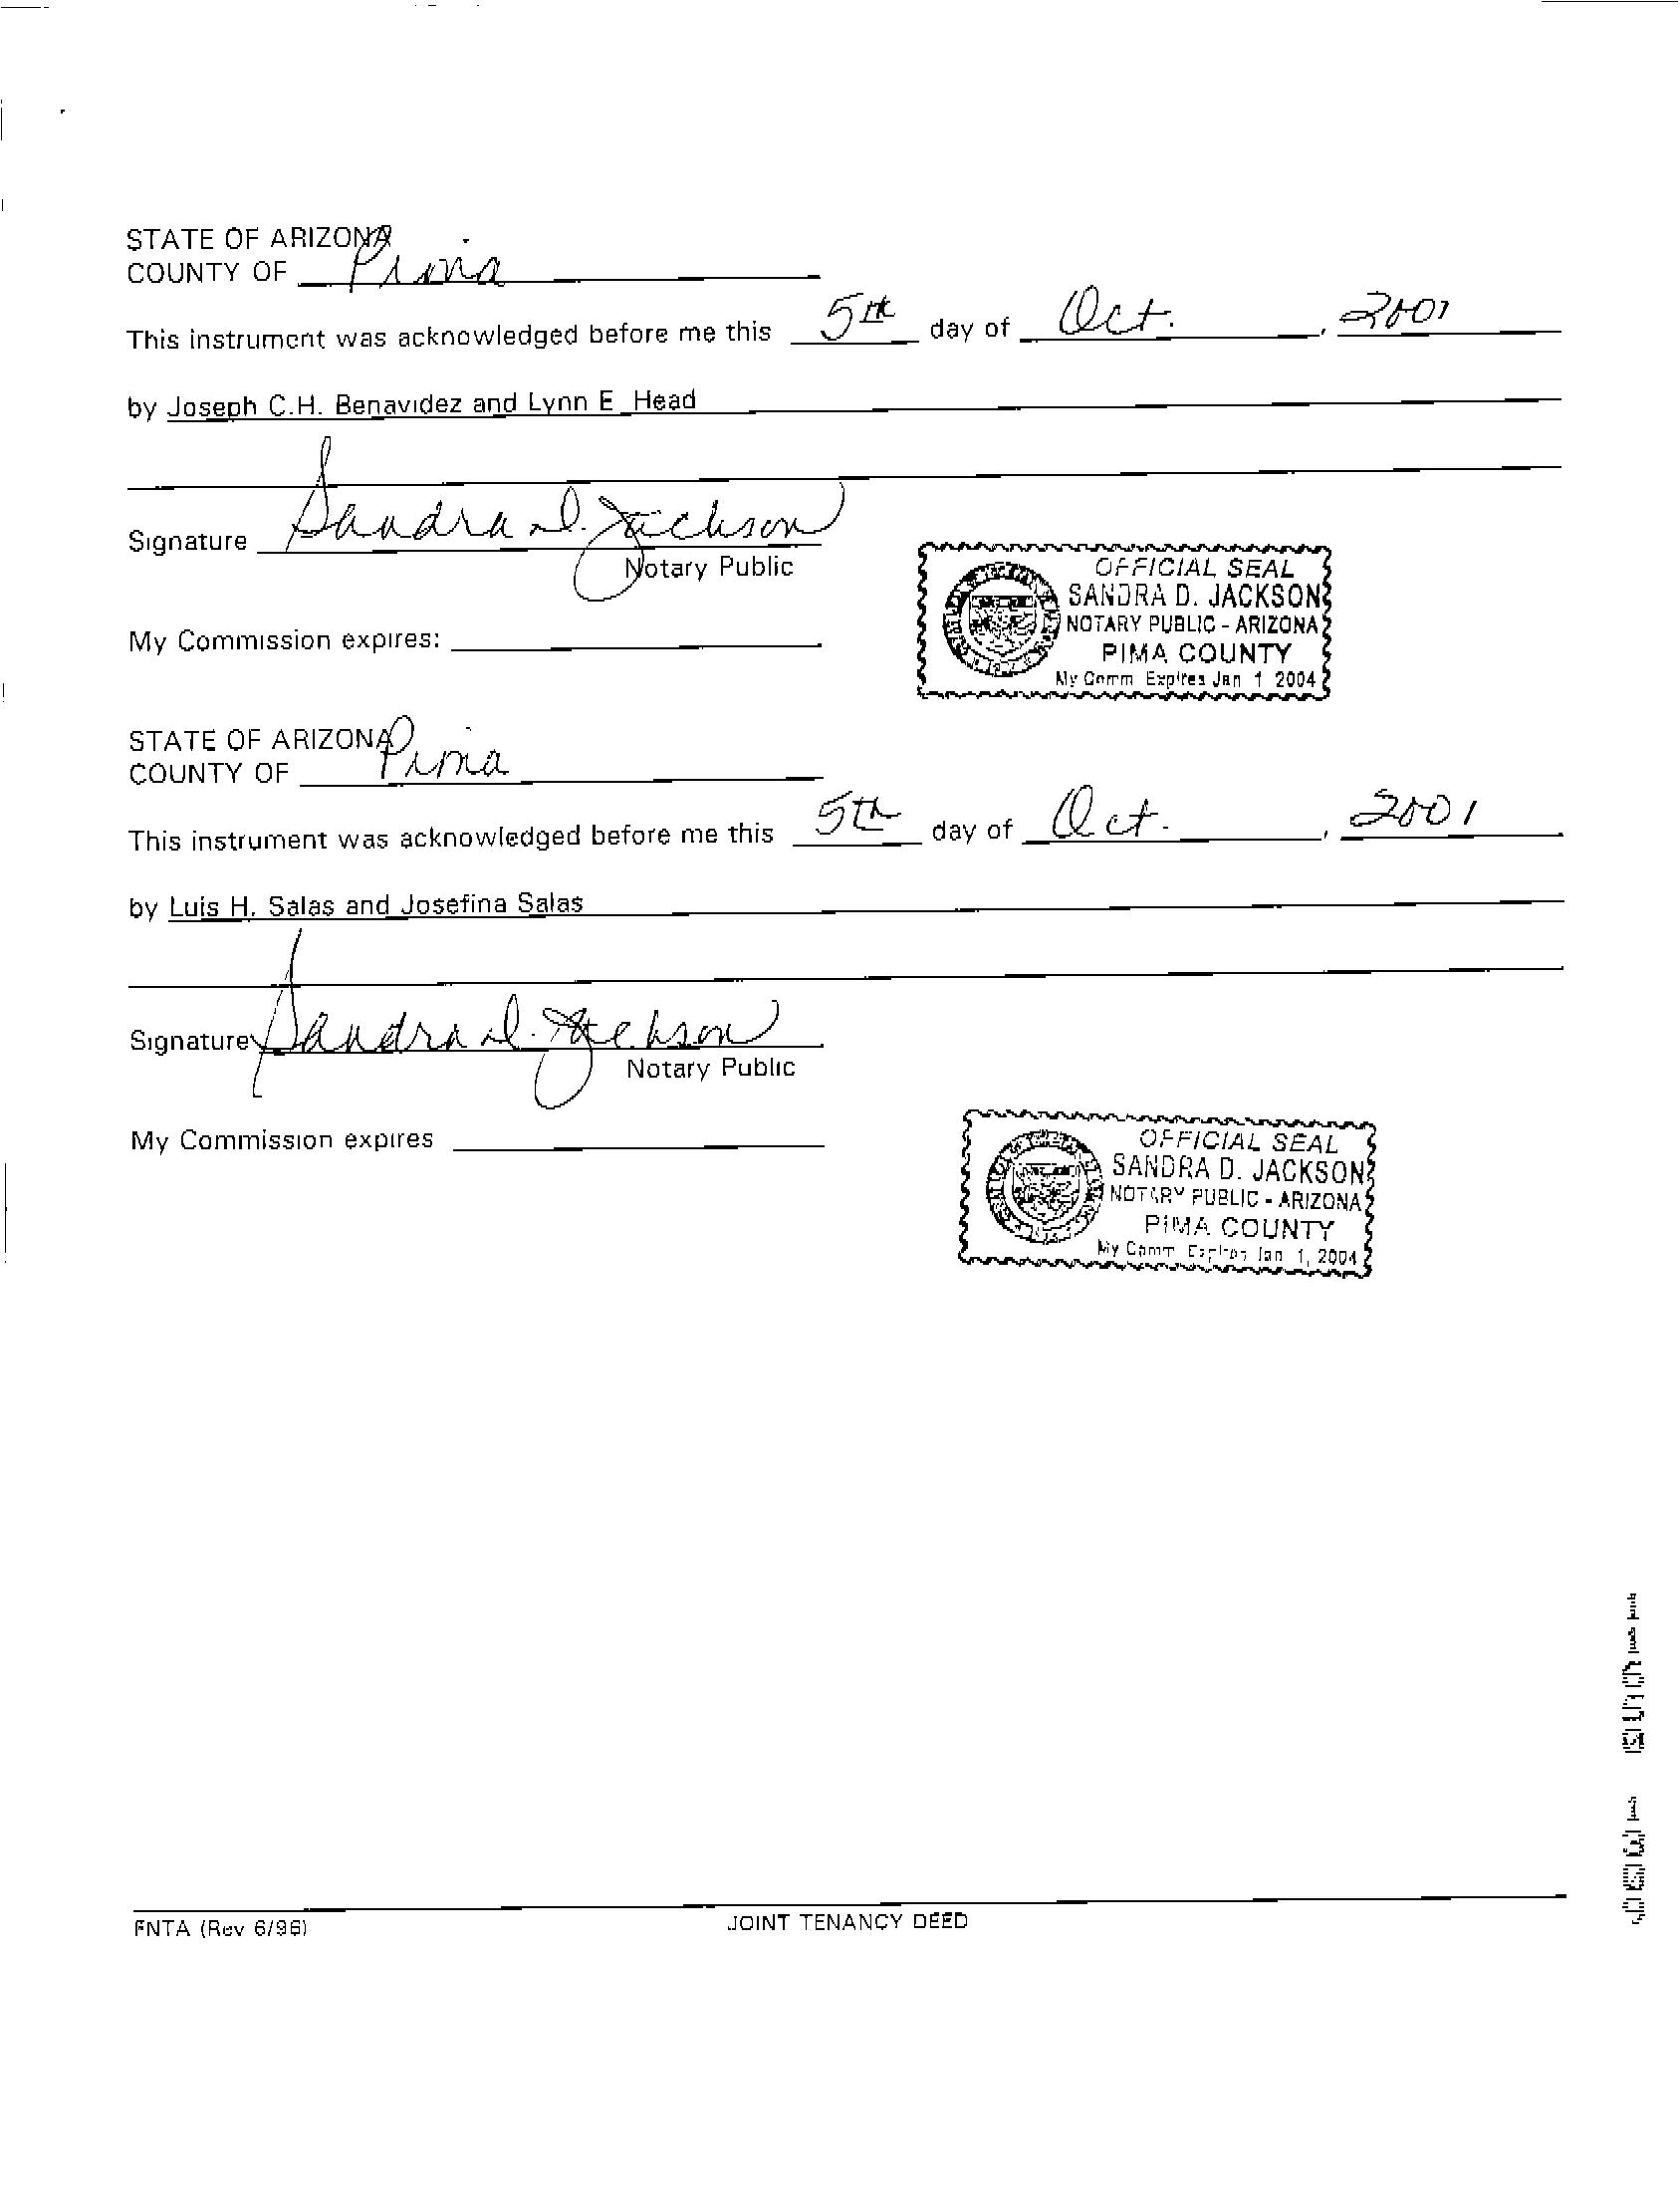 STATE OF ARIZONA
COUNTY OF Pima
This instrument was acknowledged before me this 5th day of Oct. , 2001
by Joseph C.H. Benavidez and Lynn E Head
Signature Sandra D. Jackson
Notary Public
My Commission expires:
OFFICIAL SEAL
SANDRA D. JACKSON
NOTARY PUBLIC - ARIZONA
PIMA COUNTY
My Comm Expires Jan 1 2004
STATE OF ARIZONA
COUNTY OF Pima
This instrument was acknowledged before me this 5th day of Oct. , 2001
by Luis H. Salas and Josefina Salas
Signature Sandra D. Jackson
Notary Public
My Commission expires
OFFICIAL SEAL
SANDRA D. JACKSON
NOTARY PUBLIC - ARIZONA
PIMA COUNTY
My Comm Expires Jan 1, 2004
FNTA (Rev 6/96)
JOINT TENANCY DEED